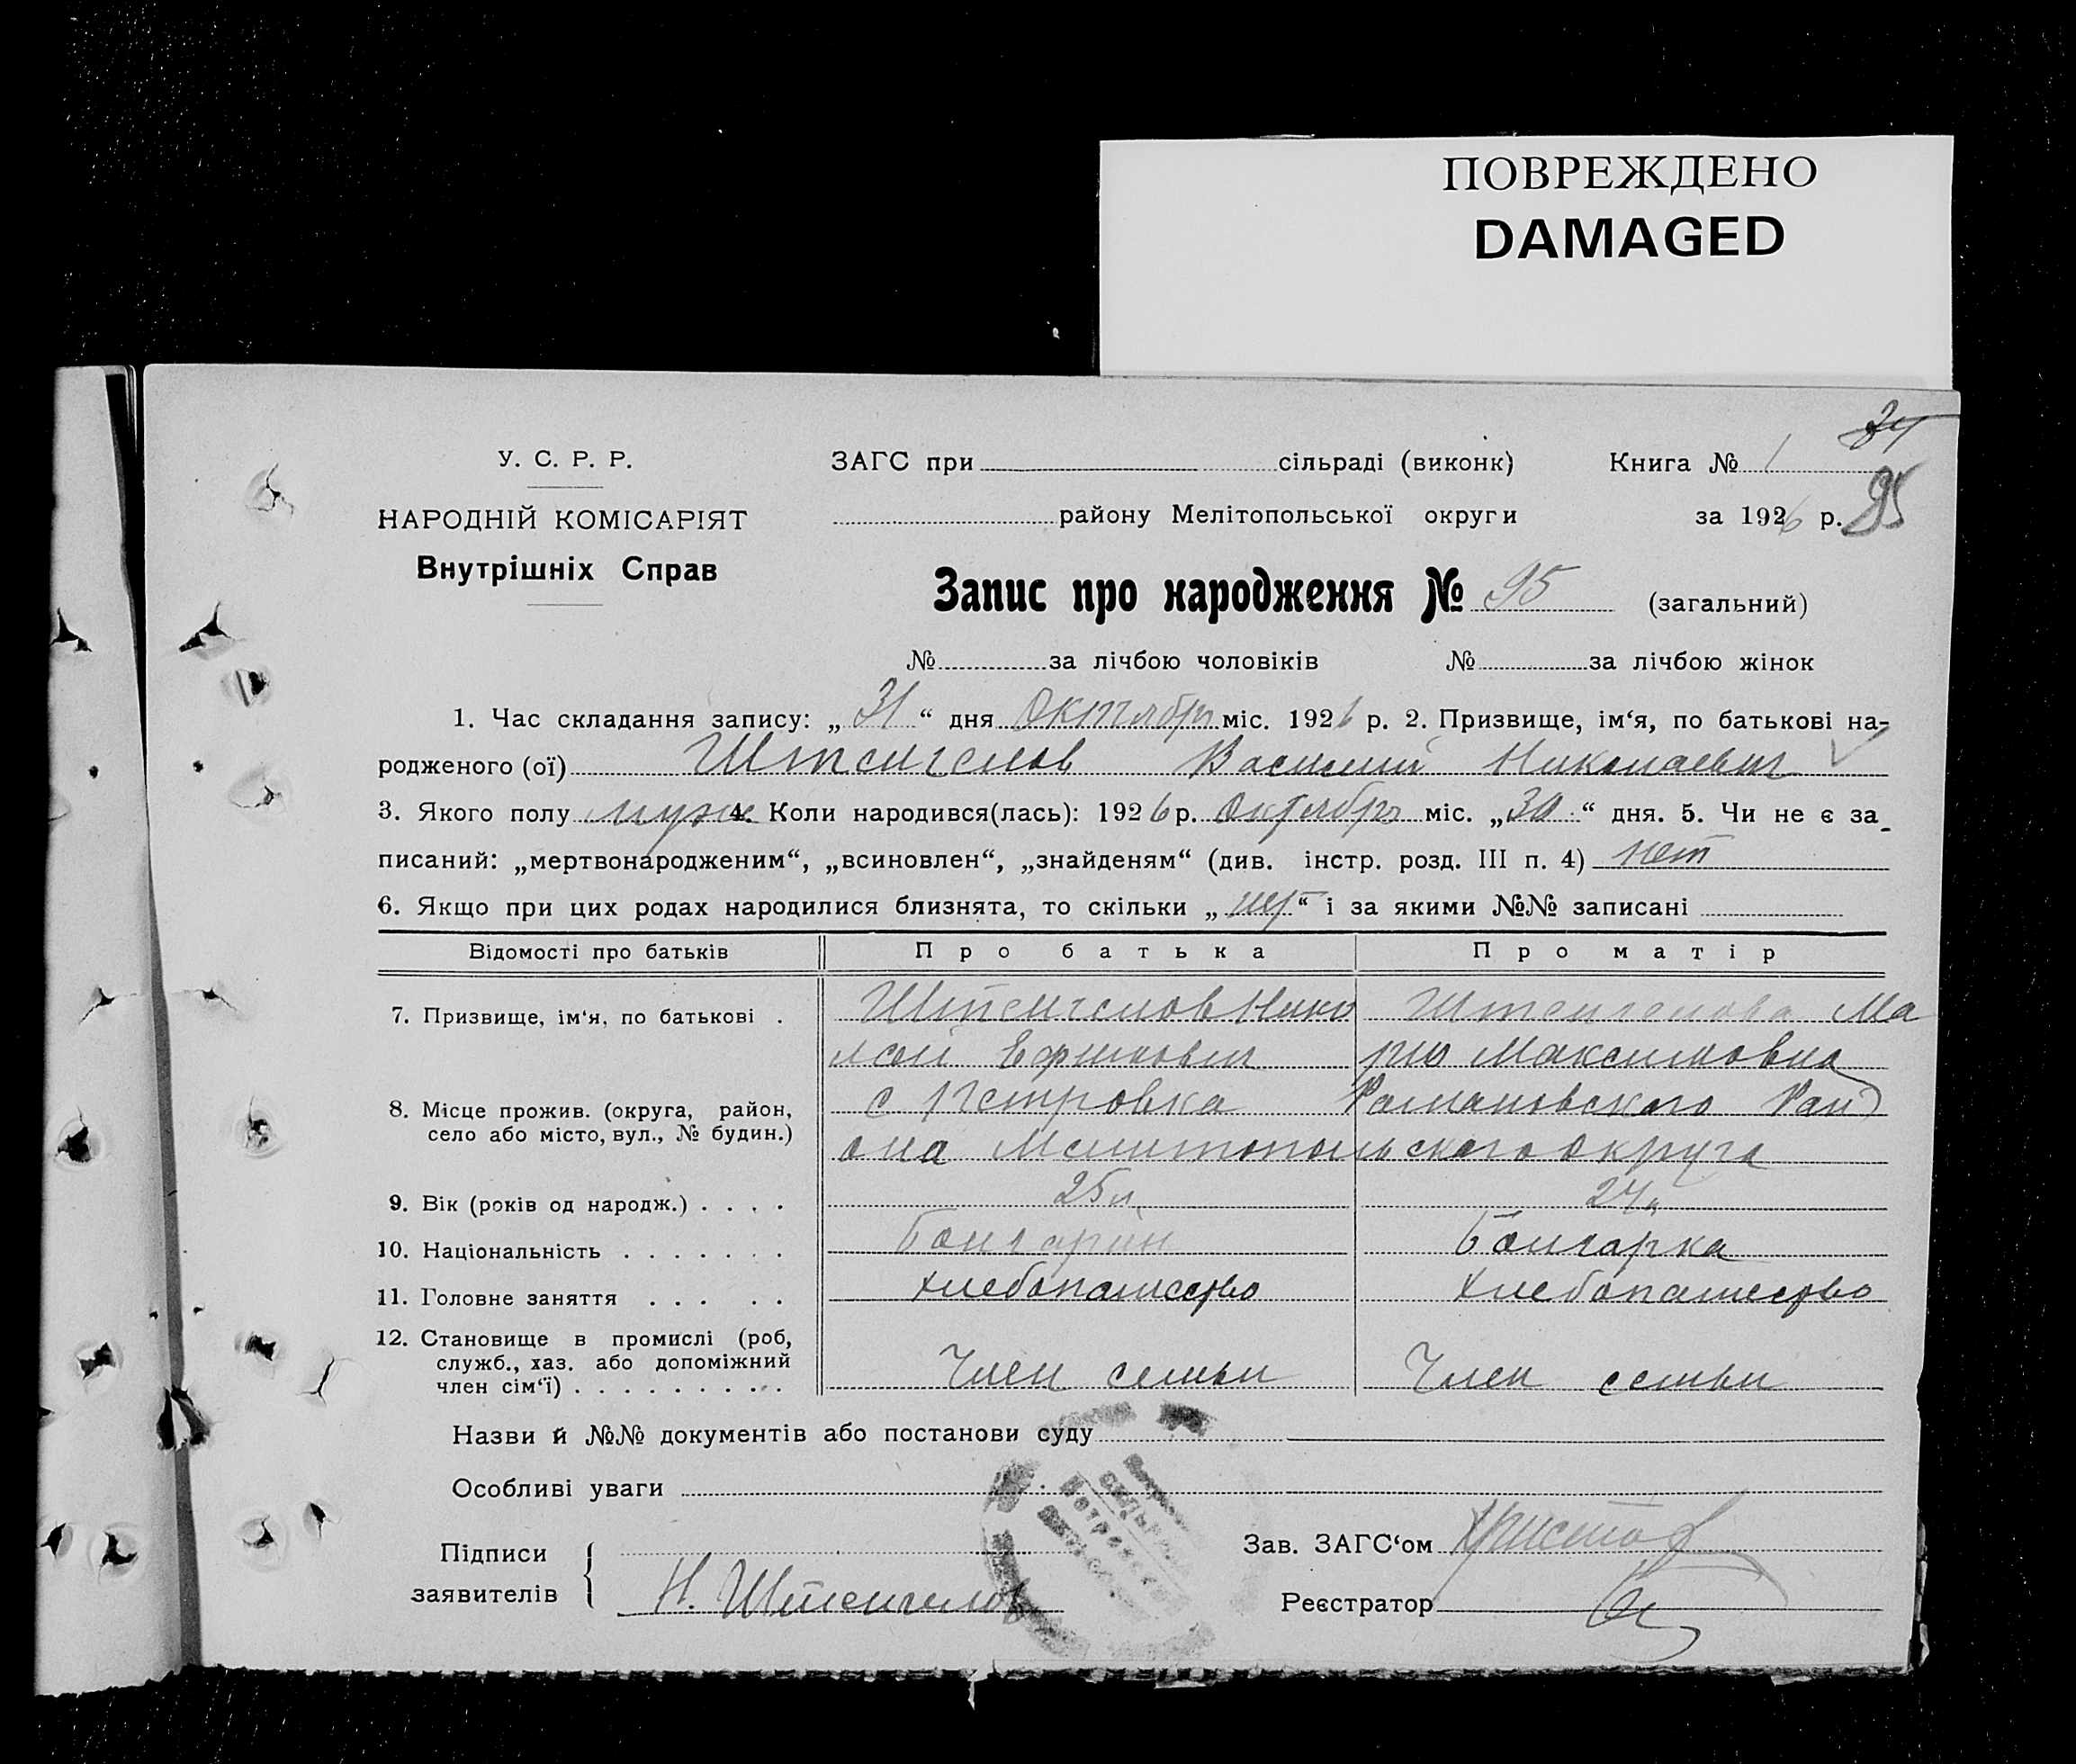 ПОВРЕЖДЕНО
DAMAGED
34
У. С. Р. Р.
НАРОДНІЙ КОМІСАРІЯТ
Внутрішніх Справ
ЗАГС при сільраді (виконк) Книга № 1
району Мелітопольської округи за 1926 р. 95
Запис про народження № 95 (загальний)
№ за лічбою чоловіків № за лічбою жінок
1. Час складання запису: „31“ дня Октября міс. 1926 р. 2. Призвище, ім‘я, по батькові на-
родженого (ої) Штенгелов Василий Николаевич
3. Якого полу муж 4. Коли народився(лась): 1926 р. Октября міс. „30“ дня. 5. Чи не є за-
писаний: „мертвонародженим“, „всиновлен“, „знайденям“ (див. інстр. розд. III п. 4) нет
6. Якщо при цих родах народилися близнята, то скільки „нет“ і за якими №№ записані
Відомості про батьків Про батька Про матір
7. Призвище, ім‘я, по батькові . Штенгелов Нико Штенгелова Ма
лай Ефимович рия Максимовна
8. Місце прожив. (округа, район, с Петровка Романовского Рай
село або місто, вул., № будин.) она Мелитопольского округа
9. Вік (років од народж.) . . . . 25 л. 24 л.
10. Національність . . . . . . . Болгарин Болгарка
11. Головне заняття . . . . . Хлебопашество Хлебопашество
12. Становище в промислі (роб,
служб., хаз. або допоміжний
член сім‘ї) . . . . . . . . . . Член семьи Член семьи
Назви й №№ документів або постанови суду
Особливі уваги
Підписи
заявителів Н. Штенгелов
Зав. ЗАГС‘ом Христов
Реєстратор